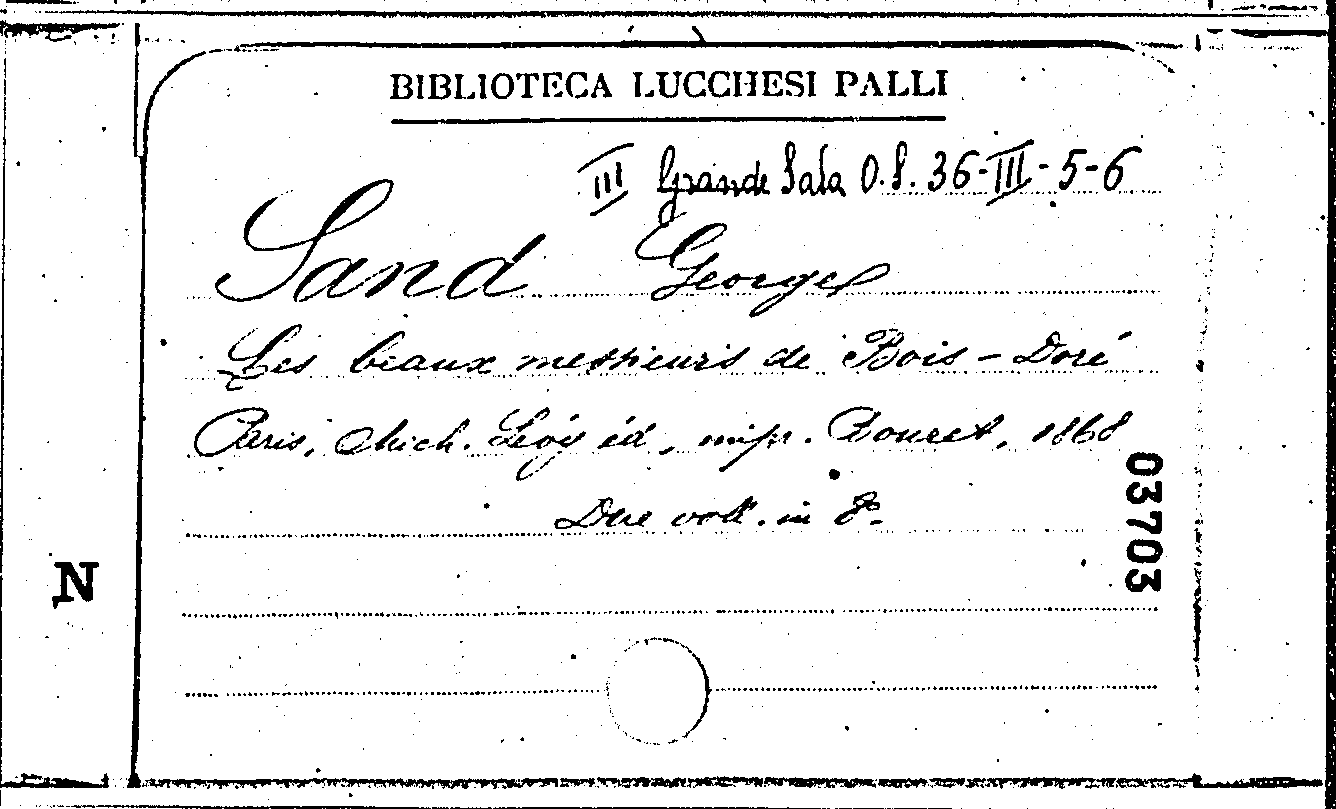 BIBLIOTECA LUCCHESI PALLI
III Grande Sala O.S. 36-III-5-6
Sand George
Les beaux messieurs de Bois-Doré
Paris, Mich. Lévy éd, impr. Bouret, 1868
Due voll. in 8º
03703
N